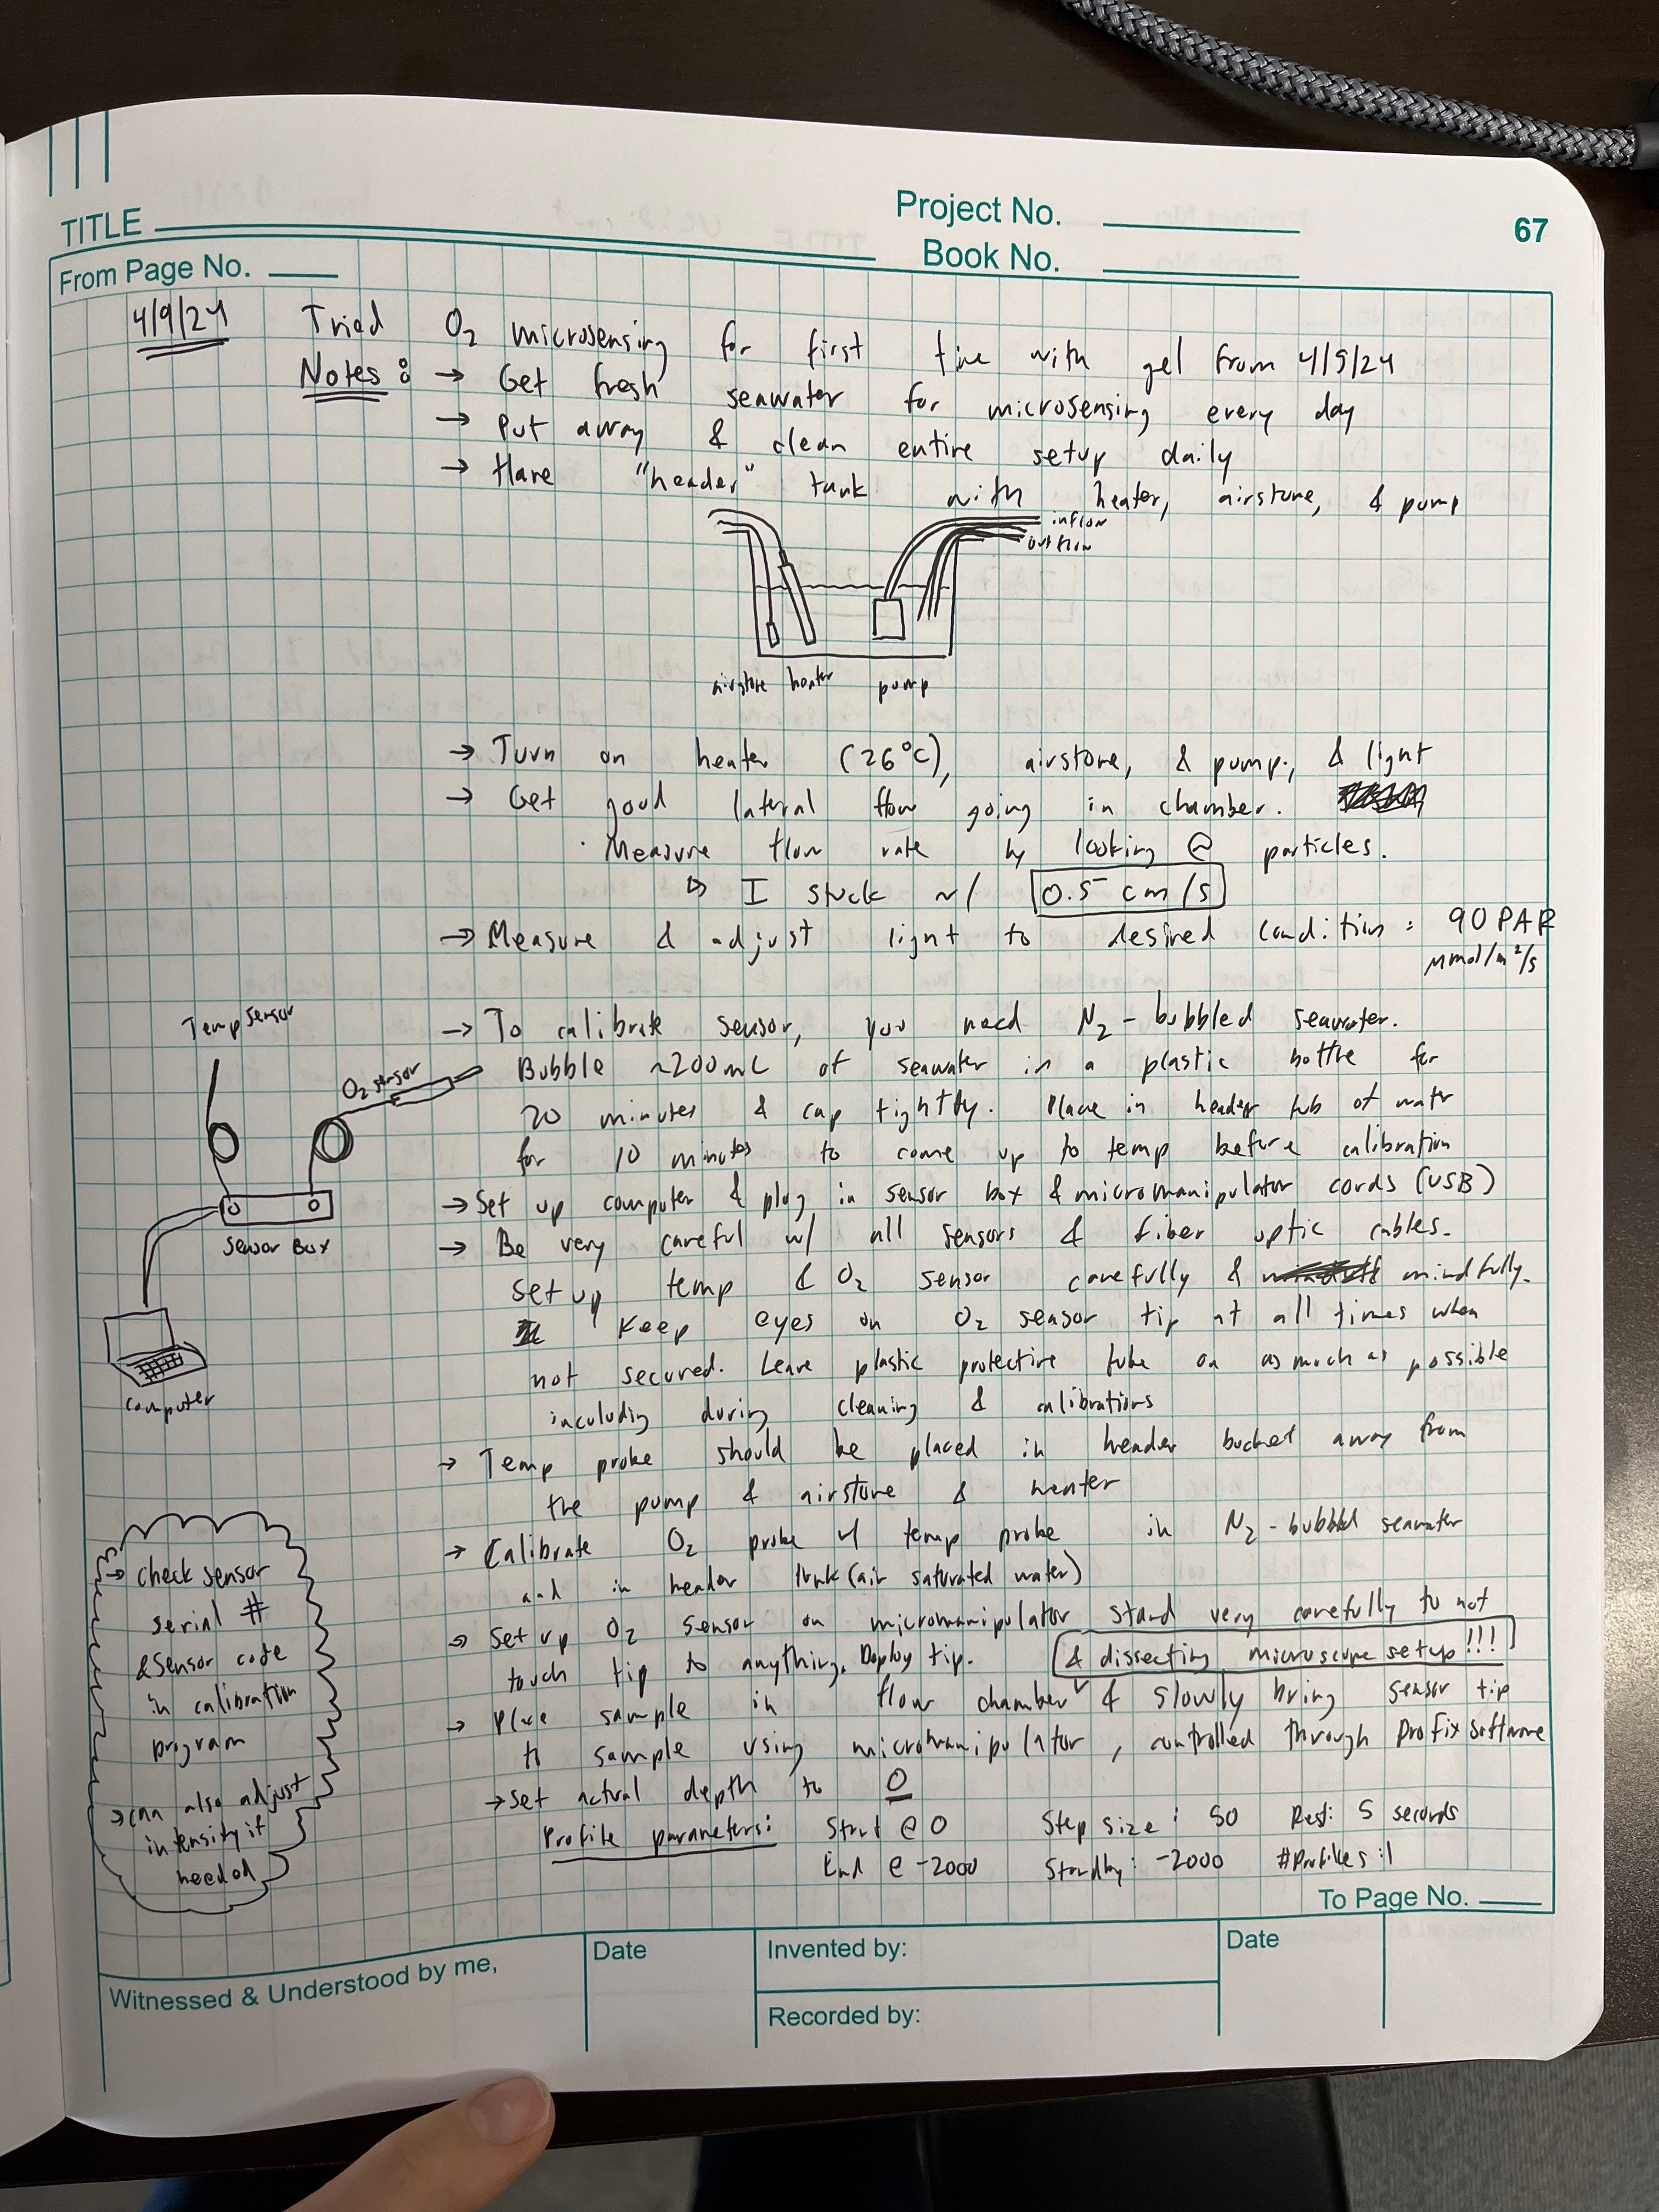 TITLE
Project No.
Book No.
67
From Page No.
4/9/24 Tried O2 microsensing for first time with gel from 4/5/24
Notes: → Get fresh seawater for microsensing every day
→ Put away & clean entire setup daily
→ Have "header" tank with heater, airstone, & pump
inflow
outflow
airstone heater pump
→ Turn on heater (26°C), airstone, & pump, & light
→ Get good lateral flow going in chamber.
· Measure flow rate by looking @ particles.
↳ I stuck w/ 0.5 cm/s
→ Measure & adjust light to desired condition: 90 PAR
μmol/m²/s
Temp Sensor
O2 sensor
Sensor Box
computer
→ To calibrate sensor, you need N2-bubbled seawater.
Bubble ~200mL of seawater in a plastic bottle for
20 minutes & cap tightly. Place in header tub of water
for 10 minutes to come up to temp before calibration
→ Set up computer & plug in sensor box & micromanipulator cords (USB)
→ Be very careful w/ all sensors & fiber optic cables.
set up temp & O2 sensor carefully & mindfully.
Keep eyes on O2 sensor tip at all times when
not secured. Leave plastic protective tube on as much as possible
inculudiy during cleaning & calibrations
→ Temp probe should be placed in header bucket away from
the pump & airstone & heater
→ Calibrate O2 probe w/ temp probe in N2-bubbled seawater
and in header tank (air saturated water)
→ Set up O2 sensor on micromanipulator stand very carefully to not
touch tip to anything. Deploy tip. & dissecting microscope setup!!!
→ Place sample in flow chamber & slowly bring sensor tip
to sample using micromanipulator, controlled through Profix software
→ Set actual depth to 0
Profile parameters: Start @ 0 Step size: 50 Rest: 5 seconds
End @ -2000 Standby: -2000 #Profiles: 1
→ check sensor
serial #
& Sensor code
in calibration
program
→ can also adjust
intensity if
needed
To Page No.
Witnessed & Understood by me,
Date
Invented by:
Recorded by:
Date